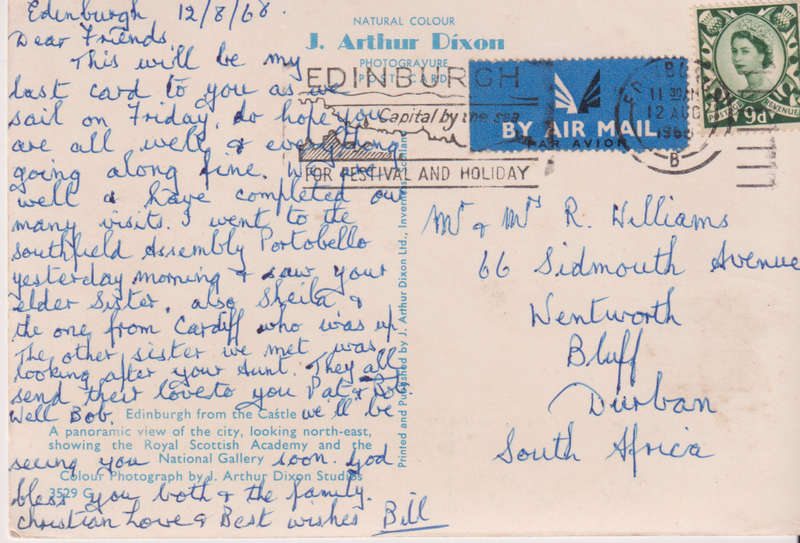 Edinburgh 12/8/68.
Dear Friends,
This will be my
last card to you as we
sail on Friday, do hope you
are all well & everything
going along fine. We are
well & have completed our
many visits. I went to the
Southfield Assembly Portobello
yesterday morning & saw your
elder Sister, also Sheila &
the one from Cardiff who was up
The other sister we met was
looking after your Aunt. They all
send their love to you Pat & Bob.
Well Bob. we'll be
seeing you soon. God
bless you both & the family.
Christian Love & Best wishes Bill
NATURAL COLOUR
J. Arthur Dixon
PHOTOGRAVURE
POST CARD
EDINBURGH
Capital by the sea
FOR FESTIVAL AND HOLIDAY
BY AIR MAIL
PAR AVION
11 30 AM
12 AUG
1968
B
POSTAGE REVENUE
9d
Mr & Mrs R. Williams
66 Sidmouth Avenue
Wentworth
Bluff
Durban
South Africa
Printed and Published by J. Arthur Dixon Ltd., Inverness, Scotland
Edinburgh from the Castle
A panoramic view of the city, looking north-east,
showing the Royal Scottish Academy and the
National Gallery
Colour Photograph by J. Arthur Dixon Studios
3529 G